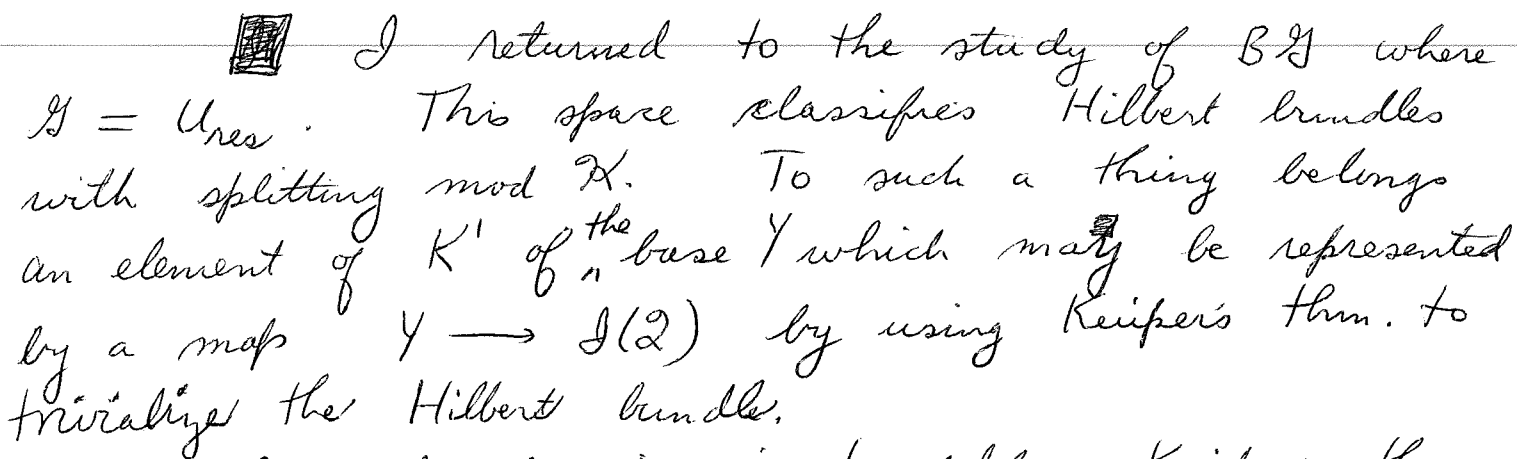 I returned to the study of B𝒢 where
𝒢 = U_res. This space classifies Hilbert bundles
with splitting mod 𝒦. To such a thing belongs
an element of K¹ of the base Y which may be represented
by a map Y ⟶ I(2) by using Kuiper's thm. to
trivialize the Hilbert bundle.